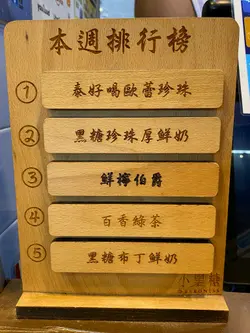 本週排行榜
① 泰好喝歐蕾珍珠
② 黑糖珍珠厚鮮奶
③ 鮮檸伯爵
④ 百香綠茶
⑤ 黑糖布丁鮮奶
小黑糖